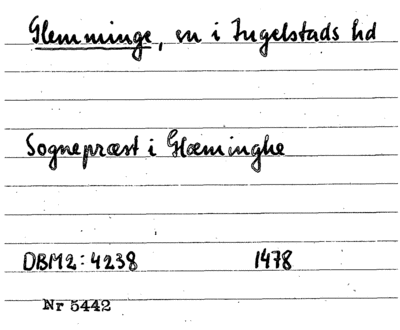 Glemminge, sn i Ingelstads hd
Sognepræst i Glæminghe
DBM2: 4238 1478
Nr 5442